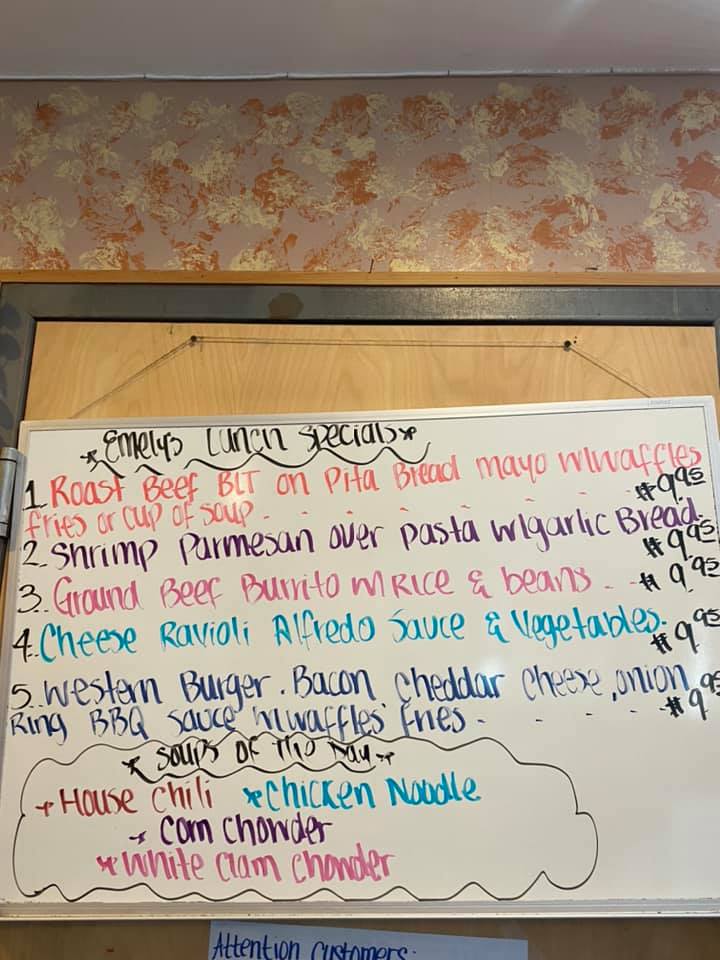 *Emelys Lunch Specials*
1. Roast Beef BLT on Pita Bread mayo w/waffles
fries or cup of soup - - - - - - $9.95
2. Shrimp Parmesan over pasta w/garlic Bread.
$9.95
3. Ground Beef Burrito w Rice & beans. - - $9.95
4. Cheese Ravioli Alfredo Sauce & Vegetables.
$9.95
5. Western Burger. Bacon, Cheddar cheese, onion
Ring BBQ sauce w/waffles fries - - - - - $9.95
*Soups of The Day*
*House Chili *Chicken Noodle
*Corn Chowder
*White Clam Chowder
Attention Customers: